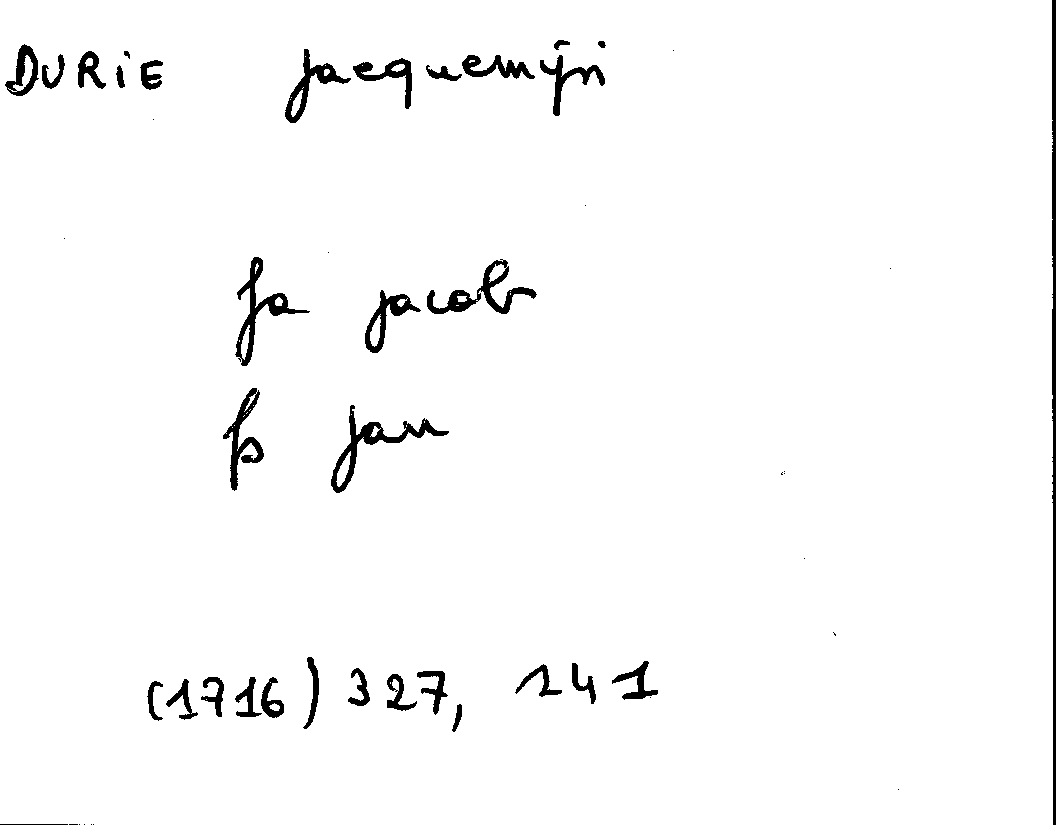 DURIE jacquemijn
fa jacob
fs jan
(1716) 327, 141